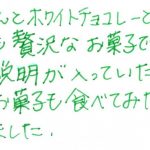 んとホワイトチョコレーと
も贅沢なお菓子で
説明が入っていた
お菓子も食べてみた
ました.